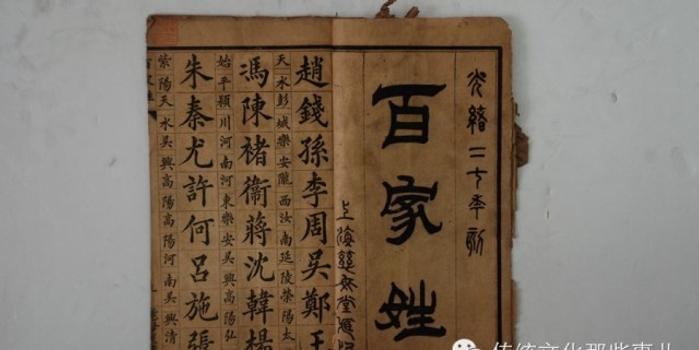 光緒二七年
百家姓
上海慈堂
趙錢孫李周吳鄭王
天水彭城樂安隴西汝南延陵滎陽太
馮陳褚衛蔣沈韓楊
始平潁川河南河東樂安吳興高陽弘
朱秦尤許何呂施張
紫陽天水吳興高陽高陽河南吳興清
传统文化那些事儿